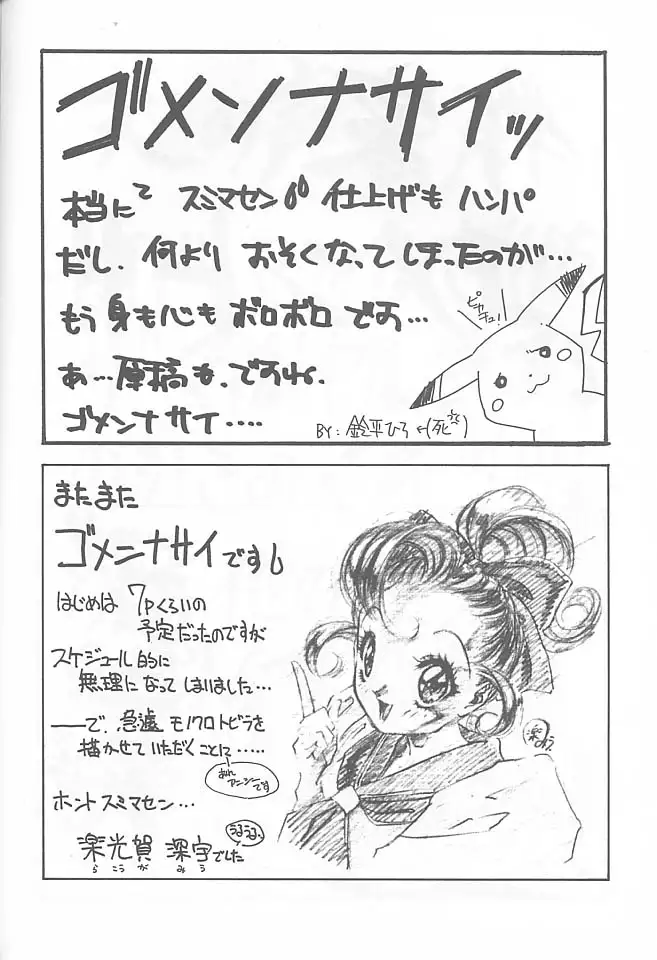 ゴメンナサイッ
本当にて スミマセン 仕上げも ハンパ
だし、何より おそくなってしまったのが…
もう 身も心も ボロボロ です…
あ…原稿も、ですね、
ゴメンナサイ‥‥
ピカチュ!
BY: 鈴平ひろ ←(死)
またまた
ゴメンナサイです
はじめは 7Pくらいの
予定だったのですが
スケジュール的に
無理になって しまいました…
――で、急遽 モノクロトビラを
描かせて いただくことに……
アニシーです
ホント スミマセン…
楽光賀 深宇でした
らこうが みう
うるうる
楽みう